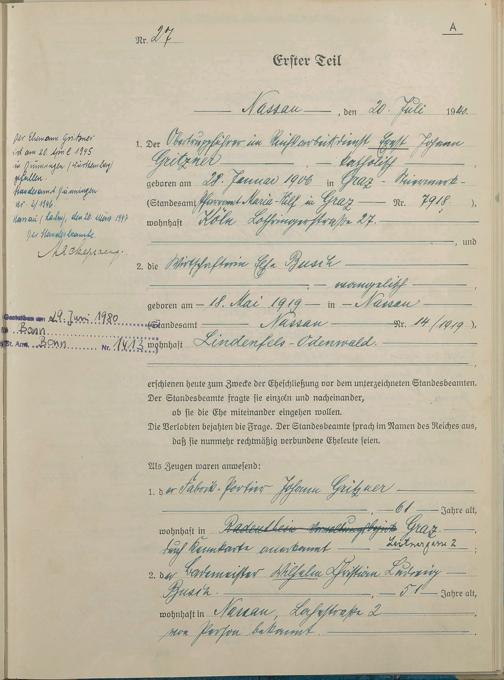 A
Nr. 27
Erster Teil
Nassau, den 20. Juli 1940.
1. Der Obertruppführer im Reichsarbeitsdienst Ernst Johann
Gritzner katholisch
geboren am 28. Januar 1906 in Graz - Steiermark
(Standesamt Pfarramt Maria-Hilf in Graz Nr. 7918)
wohnhaft Köln Lothringerstraße 27.
, und
2. die Wirtschafterin Busch
evangelisch
geboren am 18. Mai 1919 in Nassau
(Standesamt Nassau Nr. 14/1919)
wohnhaft Lindenfels-Odenwald.
erschienen heute zum Zwecke der Eheschließung vor dem unterzeichneten Standesbeamten.
Der Standesbeamte fragte sie einzeln und nacheinander,
ob sie die Ehe miteinander eingehen wollen.
Die Verlobten bejahten die Frage. Der Standesbeamte sprach im Namen des Reiches aus,
daß sie nunmehr rechtmäßig verbundene Eheleute seien.
Als Zeugen waren anwesend:
1. der Fabrik-Portier Johann Gritzner
61 Jahre alt,
wohnhaft in Radenthein Graz
Leitnergasse 2;
durch Kennkarte anerkannt
2. der Bademeister Wilhelm Christian Ludwig
Busch. 51 Jahre alt,
wohnhaft in Nassau, 2
von Person bekannt.
Der Ehemann Gritzner
ist am 20. April 1945
in (Württemberg)
gefallen
Standesamt
Nr. 2/1946
Nassau/Lahn, den 20. März 1947
Der Standesbeamte
Gestorben am 29. Juni 1980
in Bonn
St. Amt. Bonn Nr. 1413